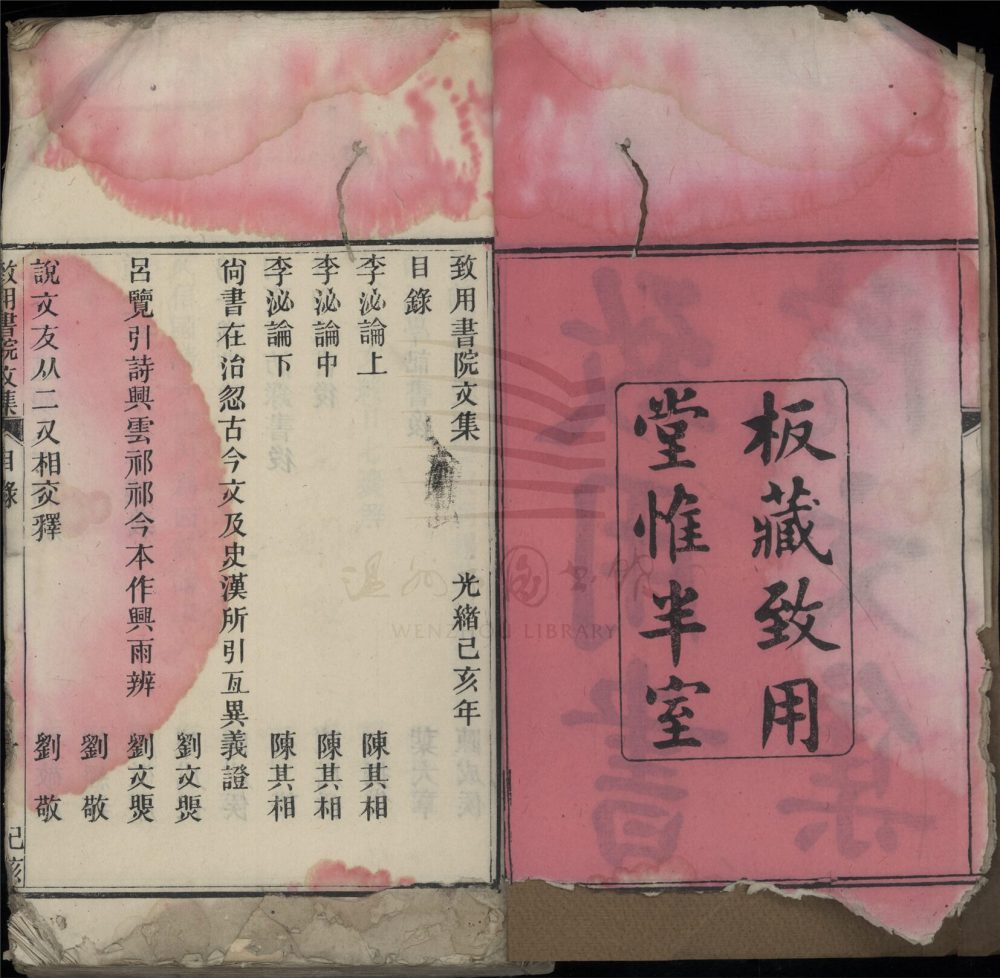 板藏致用
堂惟半室
致用書院文集 光緒己亥年
目錄
李泌論上 陳其相
李泌論中 陳其相
李泌論下 陳其相
尚書在治忽古今文及史漢所引互異義證
劉文煚
呂覽引詩興雲祁祁今本作興雨辨 劉文煚
劉敬
說文友从二又相交釋 劉敬
致用書院文集 目錄 己亥
WENZHOU LIBRARY